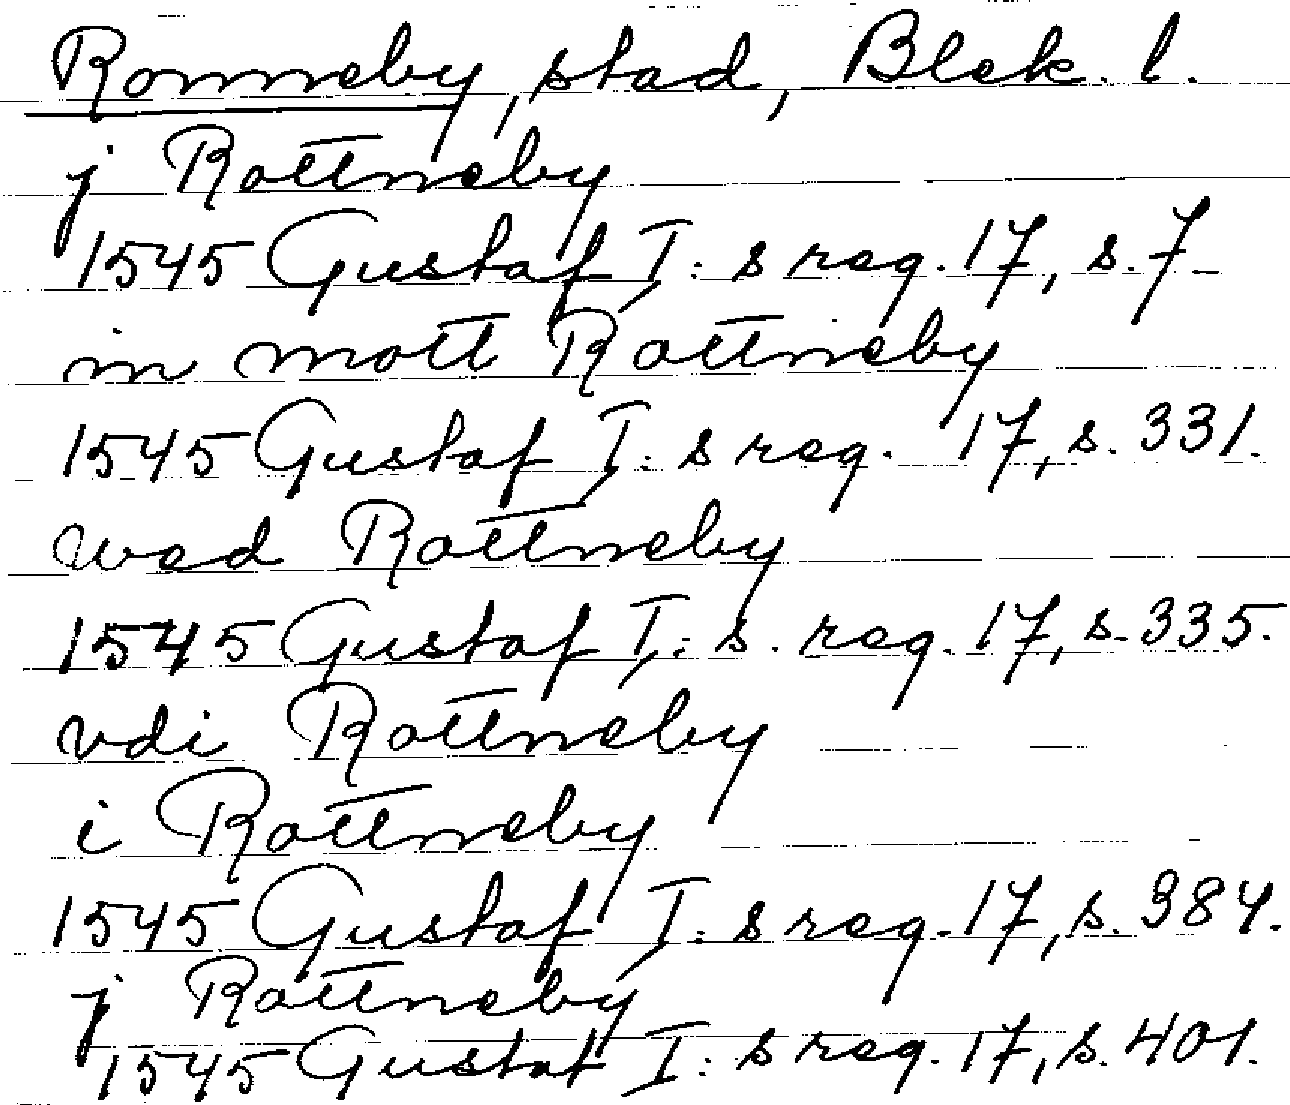 Ronneby, stad, Blek. l.
j Rottneby
1545 Gustaf I: s reg. 17, s. 7
in mott Rottneby
1545 Gustaf I: s reg. 17, s. 331.
wed Rottneby
1545 Gustaf I: s. reg. 17, s. 335.
vdi Rottneby
i Rottneby
1545 Gustaf I: s reg. 17, s. 384.
j Rottneby
1545 Gustaf I: s reg. 17, s. 401.